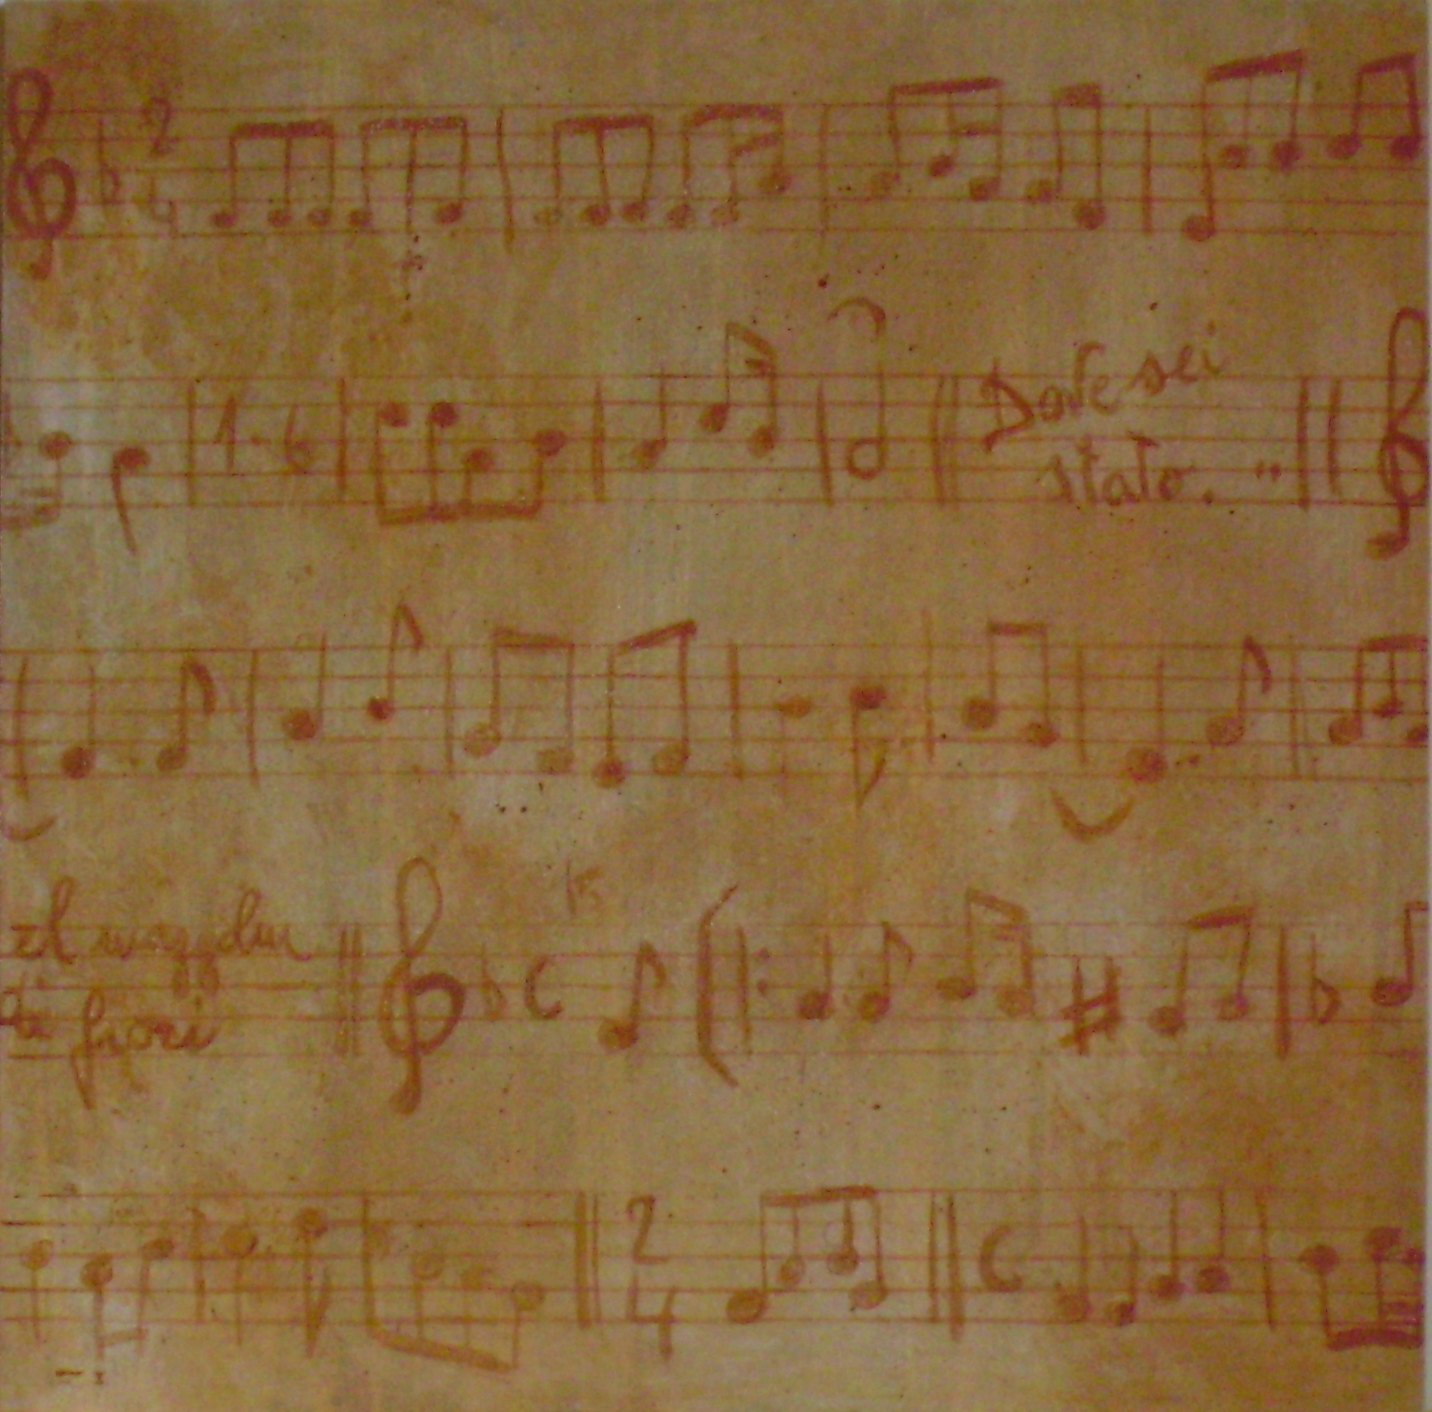 2
4
1. 6
Dove sei
stato. ..
el maggelan
di fiori
C
2
4
C